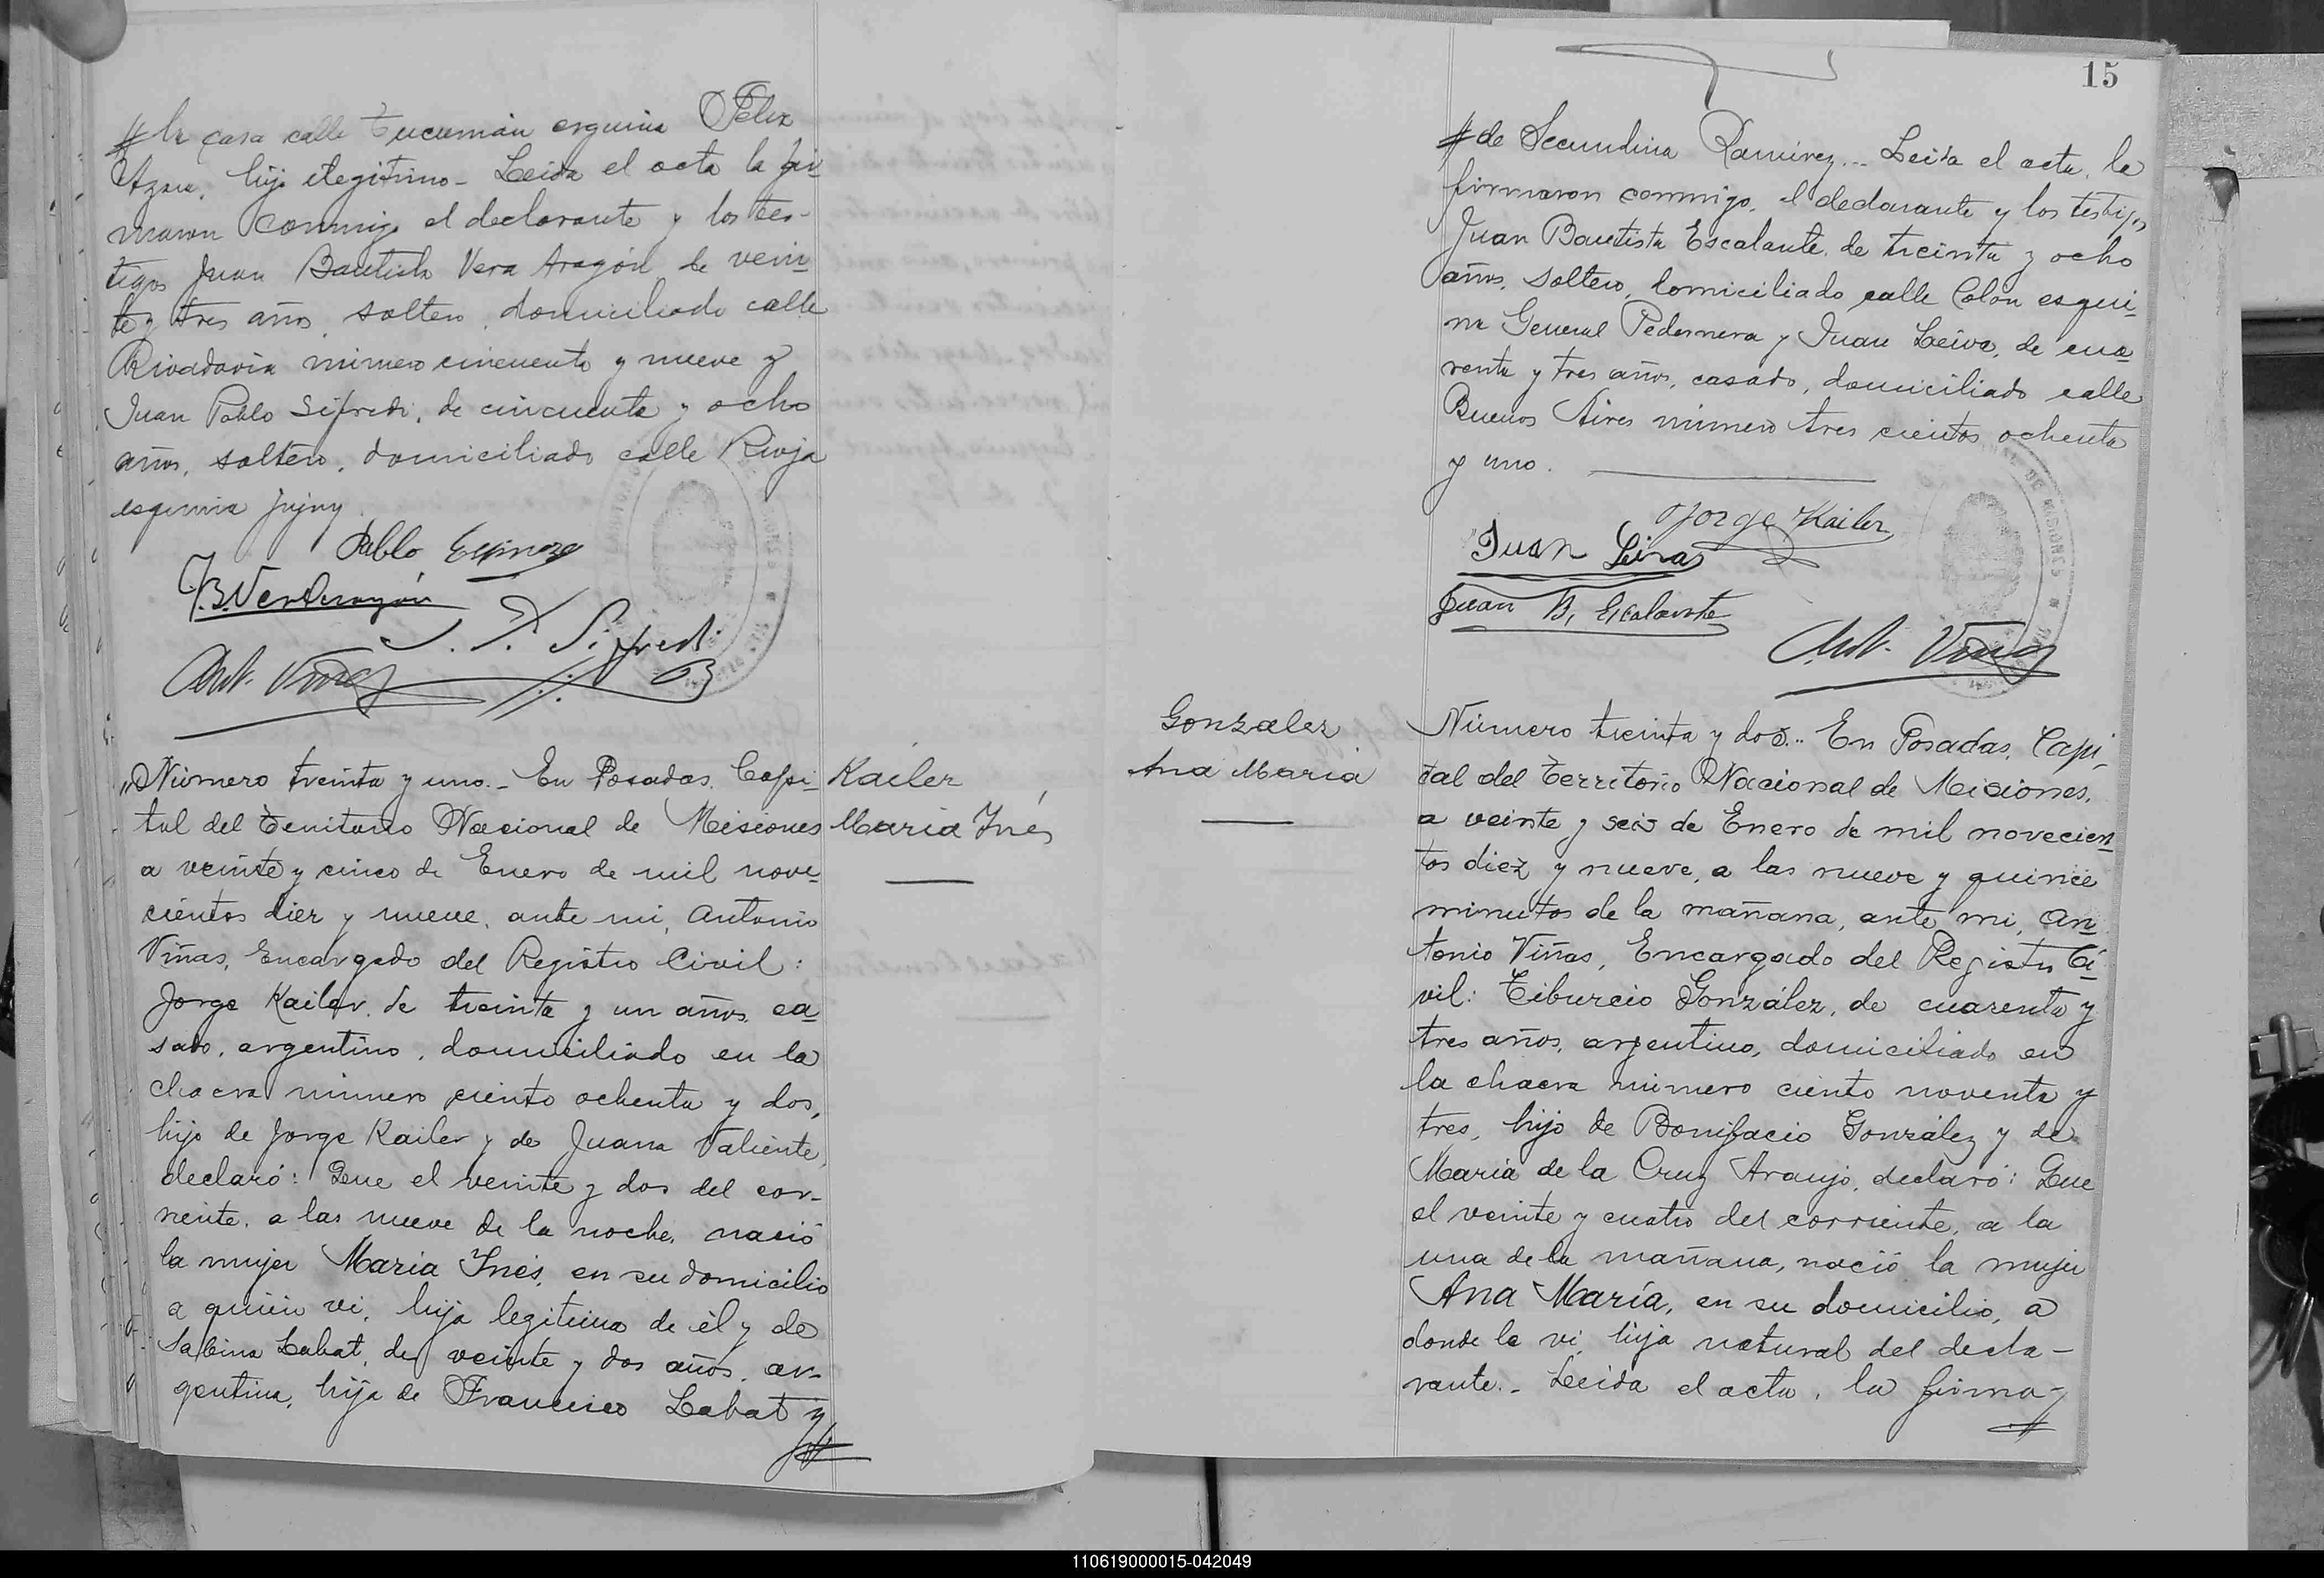 # la casa calle Tucumán esquina Félix
Azara, hijo ilegítimo - Leída el acta la fir-
maron conmigo el declarante y los tes-
tigos Juan Bautista Vera Aragón de vein-
te y tres años, soltero, domiciliado calle
Rivadavia número cincuenta y nueve y
Juan Pablo Sifredi, de cincuenta y ocho
años, soltero, domiciliado calle Rioja
esquina Jujuy.
Pablo Espinoza
J.B. Vera Aragón
J. P. Sifredi
Ant. Viñas
Número treinta y uno.- En Posadas, Capi-
tal del Territorio Nacional de Misiones
a veinte y cinco de Enero de mil nove-
cientos diez y nueve, ante mi, Antonio
Viñas, Encargado del Registro Civil:
Jorge Kailer, de treinta y un años, ca-
sado, argentino, domiciliado en la
chacra número ciento ochenta y dos,
hijo de Jorge Kailer y de Juana Valiente,
declaró: Que el veinte y dos del cor-
riente, a las nueve de la noche, nació
la mujer María Inés, en su domicilio
a quien vi, hija legítima de él y de
Sabina Labat, de veinte y dos años, ar-
gentina, hija de Francisco Labat y
#
Kailer
María Inés
15
# de Secundina Ramirez... Leída el acta, la
firmaron conmigo, el declarante y los testigos
Juan Bautista Escalante, de treinta y ocho
años, soltero, domiciliado calle Colón esqui-
na General Pedernera y Juan Leiva, de cua-
renta y tres años, casado, domiciliado calle
Buenos Aires número tres cientos ochenta
y uno.
Jorge Kailer
Juan Leiva
Juan B. Escalante
Ant. Viñas
Gonzalez
Ana Maria
Número treinta y dos... En Posadas, Capi-
tal del Territorio Nacional de Misiones,
a veinte y seis de Enero de mil novecien-
tos diez y nueve, a las nueve y quince
minutos de la mañana, ante mi, An-
tonio Viñas, Encargado del Registro Ci-
vil: Tiburcio González, de cuarenta y
tres años, argentino, domiciliado en
la chacra número ciento noventa y
tres, hijo de Bonifacio González y de
María de la Cruz Araujo, declaró: Que
el veinte y cuatro del corriente, a la
una de la mañana, nació la mujer
Ana María, en su domicilio, a
donde la vi, hija natural del decla-
rante.- Leída el acta, la firma-
#
110619000015-042049